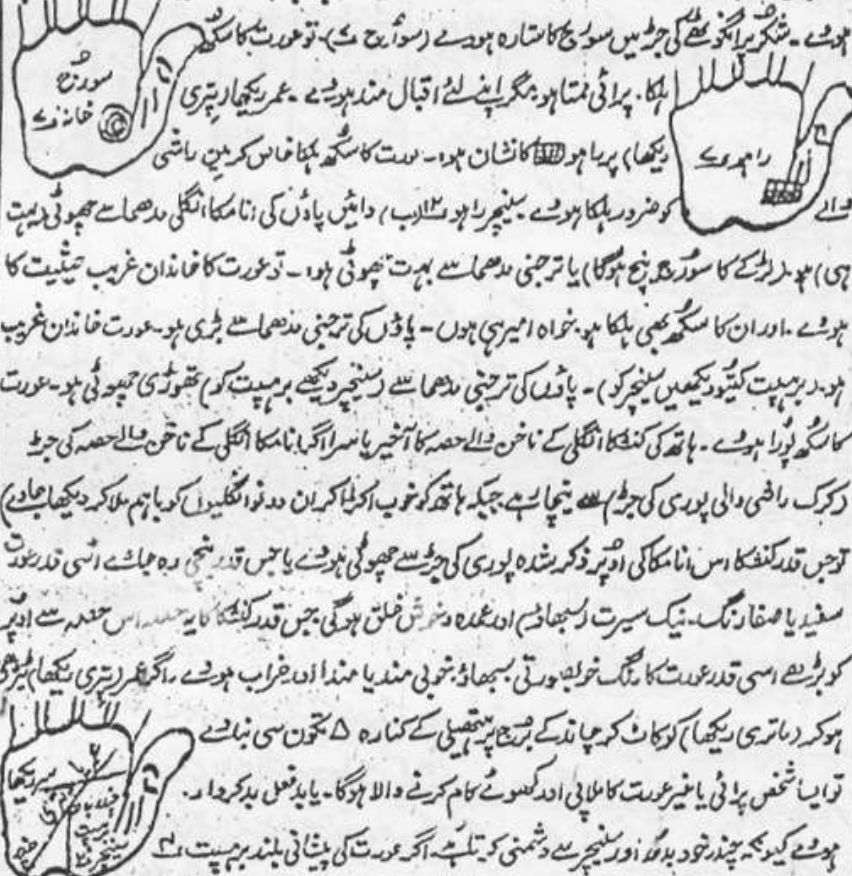 ہووے ۔ شکر پر انگوٹھے کی جڑ میں سورج کا ستارہ ہووے (سورج ۷) تو عورت کا سکھ
ہلکا ۔ پرائی ممتا ہو مگر اپنے لئے اقبال مند ہووے ۔ عمر ریکھا (پتری
ریکھا) پر راہو کا نشان ہو ۔ عورت کا سکھ ہلکا خاص کر مین راشی
والے کو ضرور ہلکا ہووے سنیچر راہو ۱۲ (ب) دائیں پاؤں کی انامکا انگلی مدھما سے چھوٹی (بہت
ہی) ہو (لڑکے کا سورج نیچ ہوگا) یا ترجنی مدھما سے بہت چھوٹی ہو ۔ تو عورت کا خاندان غریب حیثیت کا
ہووے ۔ اور ان کا سکھ بھی ہلکا ہو خواہ امیر ہی ہوں ۔ پاؤں کی ترجنی مدھما سے بڑی ہو ۔ عورت خاندان غریب
ہو (برہسپت کیتو دیکھیں سنیچر کو) ۔ پاؤں کی ترجنی مدھما سے (سنیچر دیکھے برہسپت کو) تھوڑی چھوٹی ہو ۔ عورت
کا سکھ پورا ہووے ۔ ہاتھ کی کنشکا انگلی کے ناخن والے حصہ کا آخیر یا سرا اگر انامکا انگلی کے ناخن والے حصہ کی جڑ
(کرک راشی والی پوری کی جڑ) سے نیچا رہے جبکہ ہاتھ کو خوب اکڑا کر ان دونو انگلیوں کو باہم ملا کر دیکھا جاوے)
تو جس قدر کنشکا اس انامکا کی اوپر ذکر شدہ پوری کی جڑ سے چھوٹی ہووے یا جس قدر نیچی رہ جائے اسی قدر عورت
سفید یا صفا رنگ ۔ نیک سیرت (سبھاؤ) اور عمدہ و خوش خلق ہوگی جس قدر کنشکا کا یہ حصہ اس حصہ سے اوپر
کو بڑھے اسی قدر عورت کا رنگ خوبصورتی سبھاؤ خوبی مند یا مندا اور خراب ہووے ۔ اگر عمر (پتری ریکھا) ٹیڑھی
ہو کر (ماتری ریکھا) کو کاٹ کر چاند کے برج پر ہتھیلی کے کنارہ ∆ تکون سی بناوے
تو ایسا شخص پرائی یا غیر عورت کا ملاپی اور کھوٹے کام کرنے والا ہوگا ۔ یا بدفعل بدکردار ۔
ہووے کیونکہ چندر خود بدھ اور سنیچر سے دشمنی کرتا ہے ۔ اگر عورت کی پیشانی بلند برہسپت
سورج
خانہ نمبر ۷
راہو ۷
سر ریکھا
برہسپت
سنیچر